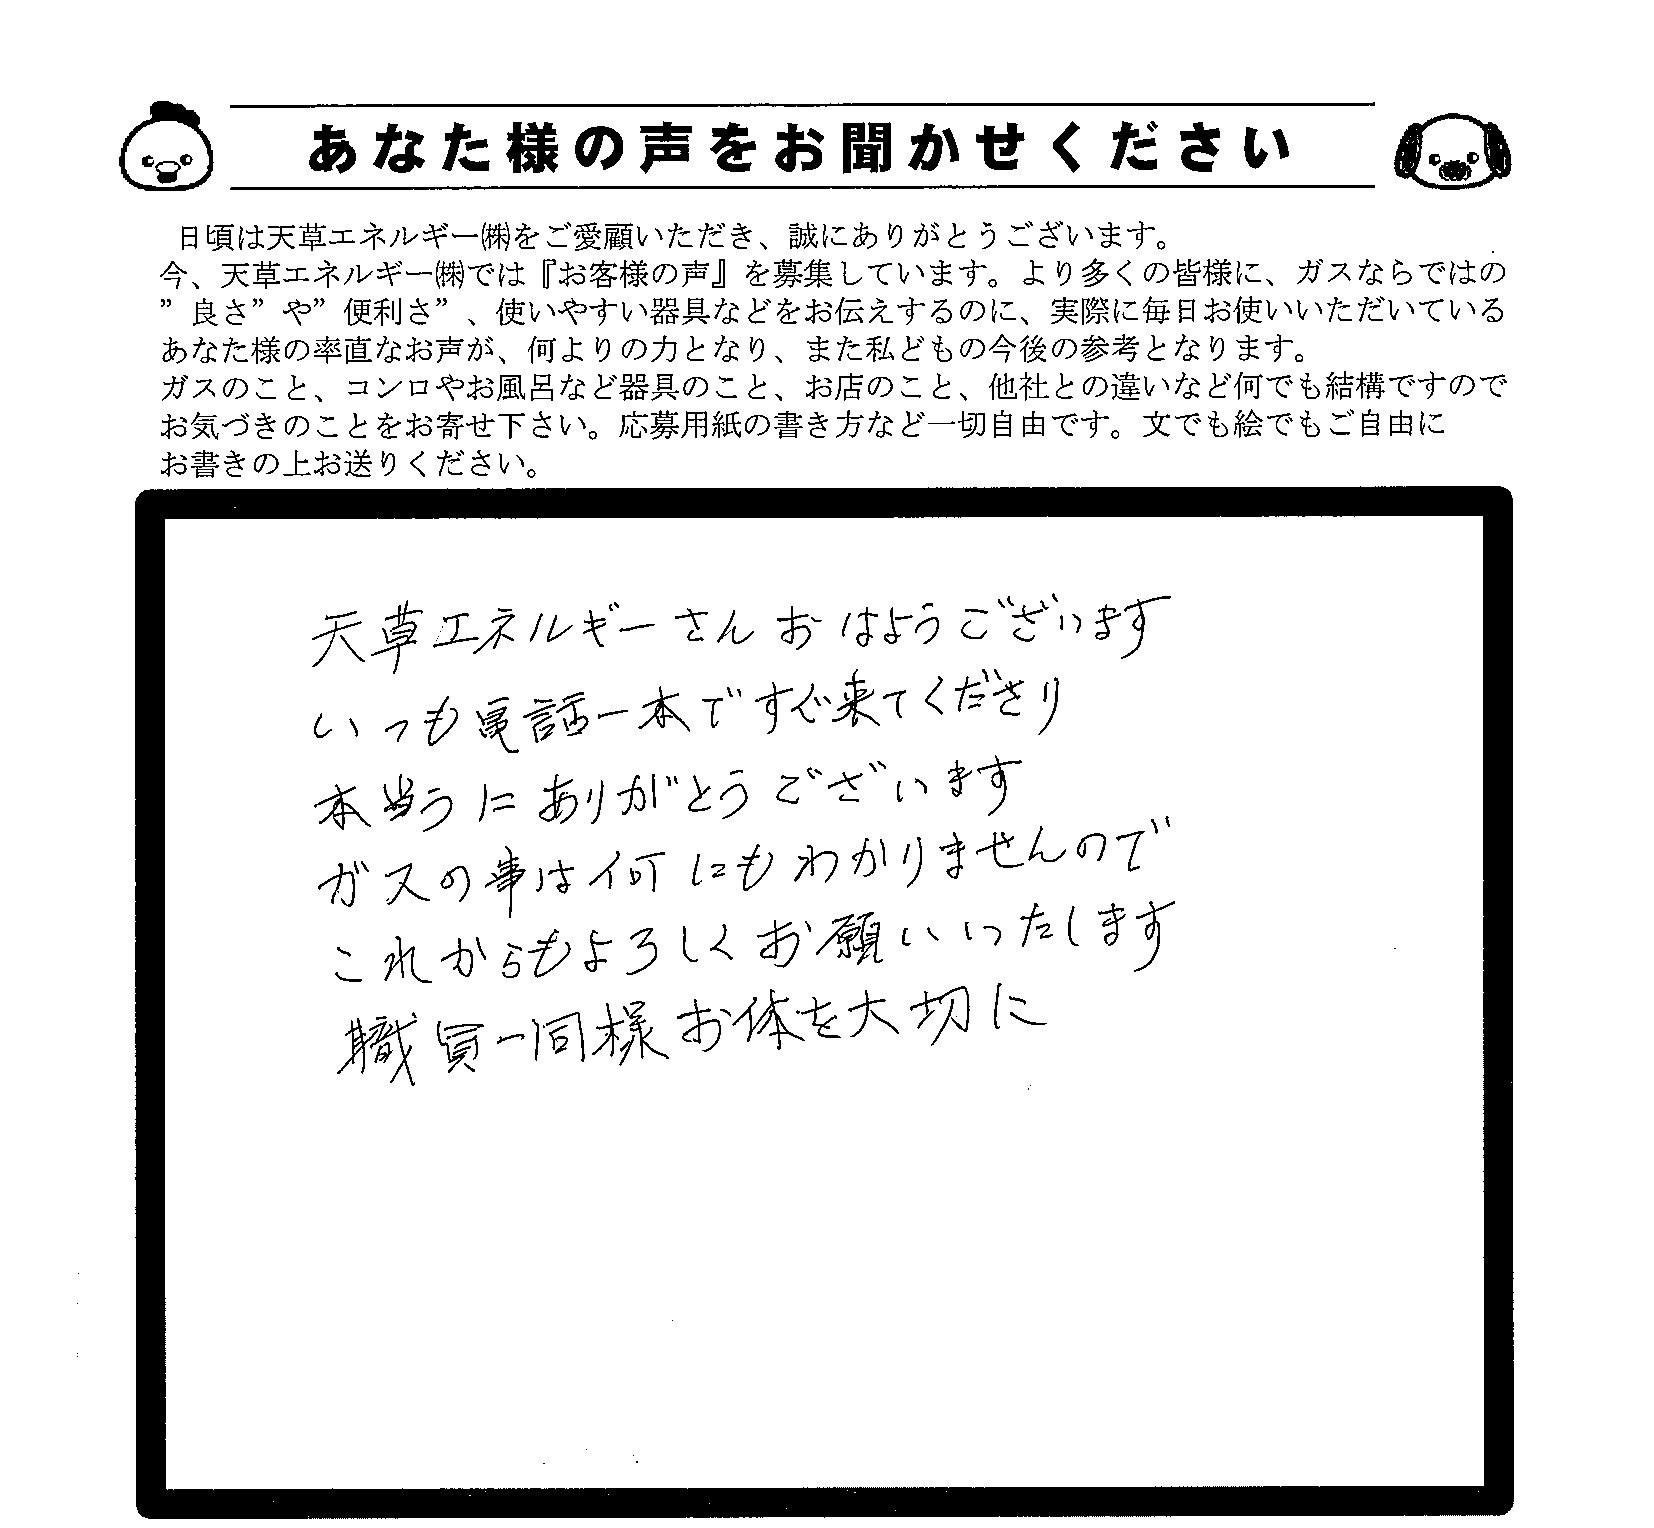 あなた様の声をお聞かせください
日頃は天草エネルギー㈱をご愛顧いただき、誠にありがとうございます。
今、天草エネルギー㈱では『お客様の声』を募集しています。より多くの皆様に、ガスならではの
”良さ”や”便利さ”、使いやすい器具などをお伝えするのに、実際に毎日お使いいただいている
あなた様の率直なお声が、何よりの力となり、また私どもの今後の参考となります。
ガスのこと、コンロやお風呂など器具のこと、お店のこと、他社との違いなど何でも結構ですので
お気づきのことをお寄せ下さい。応募用紙の書き方など一切自由です。文でも絵でもご自由に
お書きの上お送りください。
天草エネルギーさん おはようございます
いつも電話一本ですぐ来てくださり
本当うにありがとうございます
ガスの事は何にもわかりませんので
これからもよろしくお願いいたします
職員一同様お体を大切に